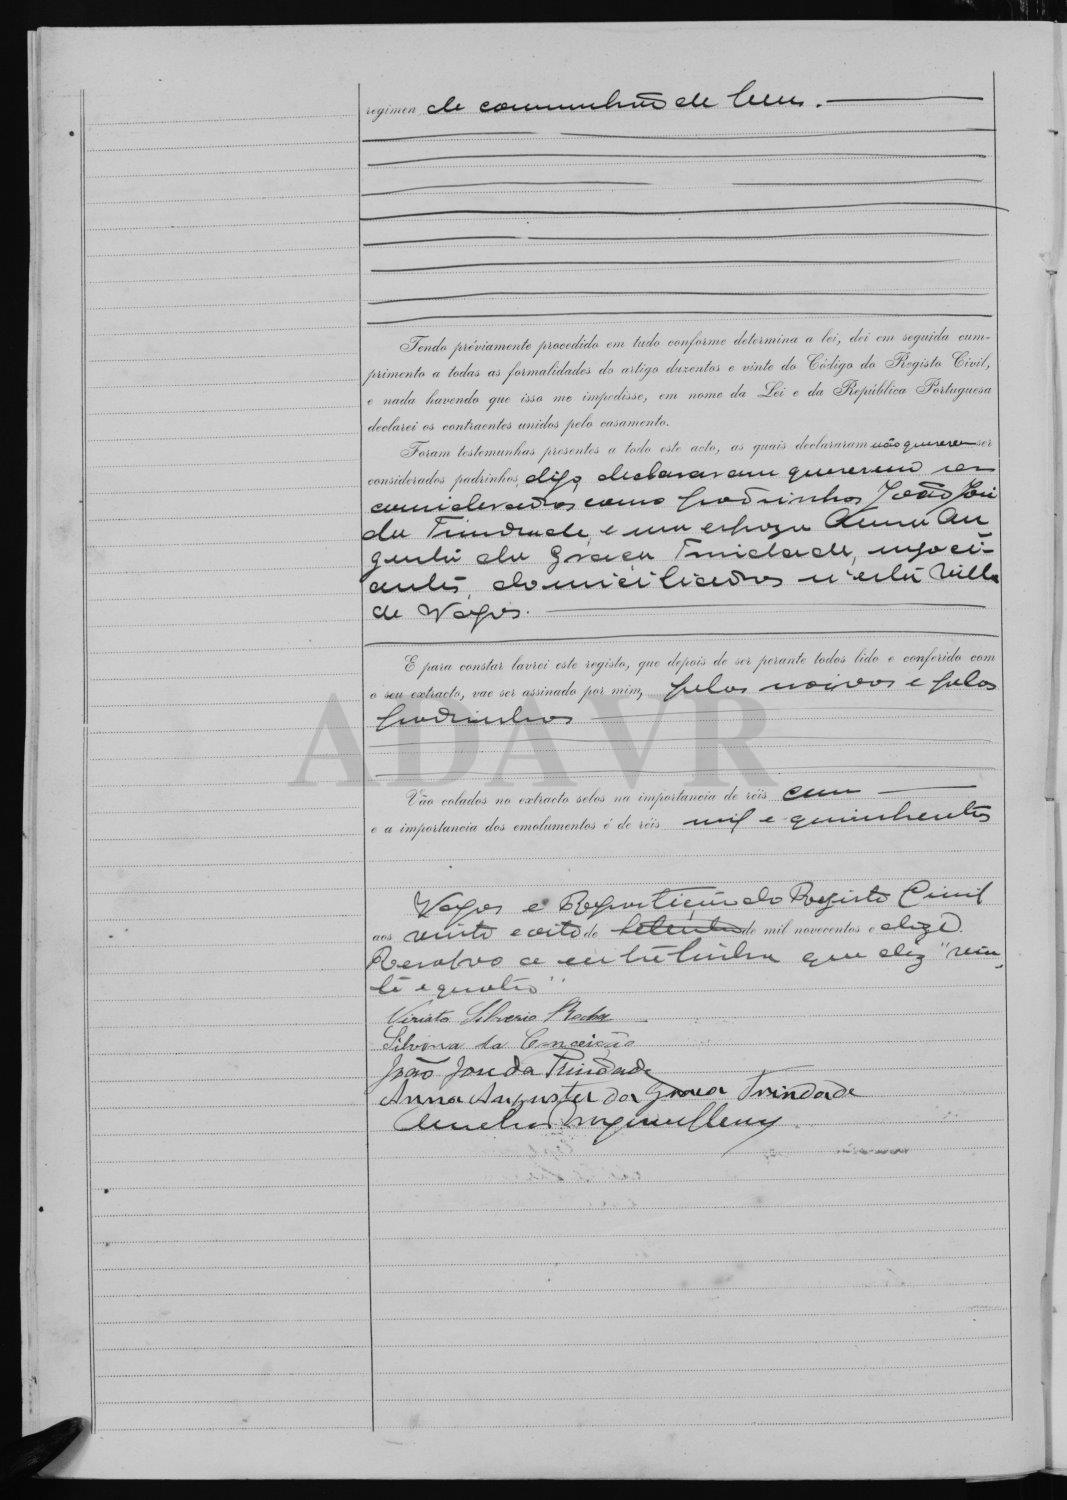 regimen de communhão de bens.
Tendo préviamente procedido em tudo conforme determina a lei, dei em seguida cum-
primento a todas as formalidades do artigo duzentos e vinte do Código do Registo Civil,
e nada havendo que isso me impedisse, em nome da Lei e da República Portuguesa
declarei os contraentes unidos pelo casamento.
Foram testemunhas presentes a todo este acto, as quais declararam não quererem ser
considerados padrinhos, digo, declararam quererem ser
considerados como padrinhos João José
da Trindade, e sua esposa Anna Au
gusta da Graça Trindade, negoci-
antes, domiciliados n'esta Villa
de Vagos.
E para constar lavrei este registo, que depois de ser perante todos lido e conferido com
o seu extracto, vae ser assinado por mim, pelos noivos e pelos
padrinhos
ADAVR
Vão colados no extracto selos na importancia de réis cem
e a importancia dos emolumentos é de réis mil e quinhentos
Vagos e Repartição do Registo Civil
aos vinte e oito de de mil novecentos e doze.
Resalvo a entrelinha que diz "vin-
te e quatro"
Viriato Silverio Rocha
Silvona da Conceição
João José da Trindade
Anna Augusta da Graça Trindade